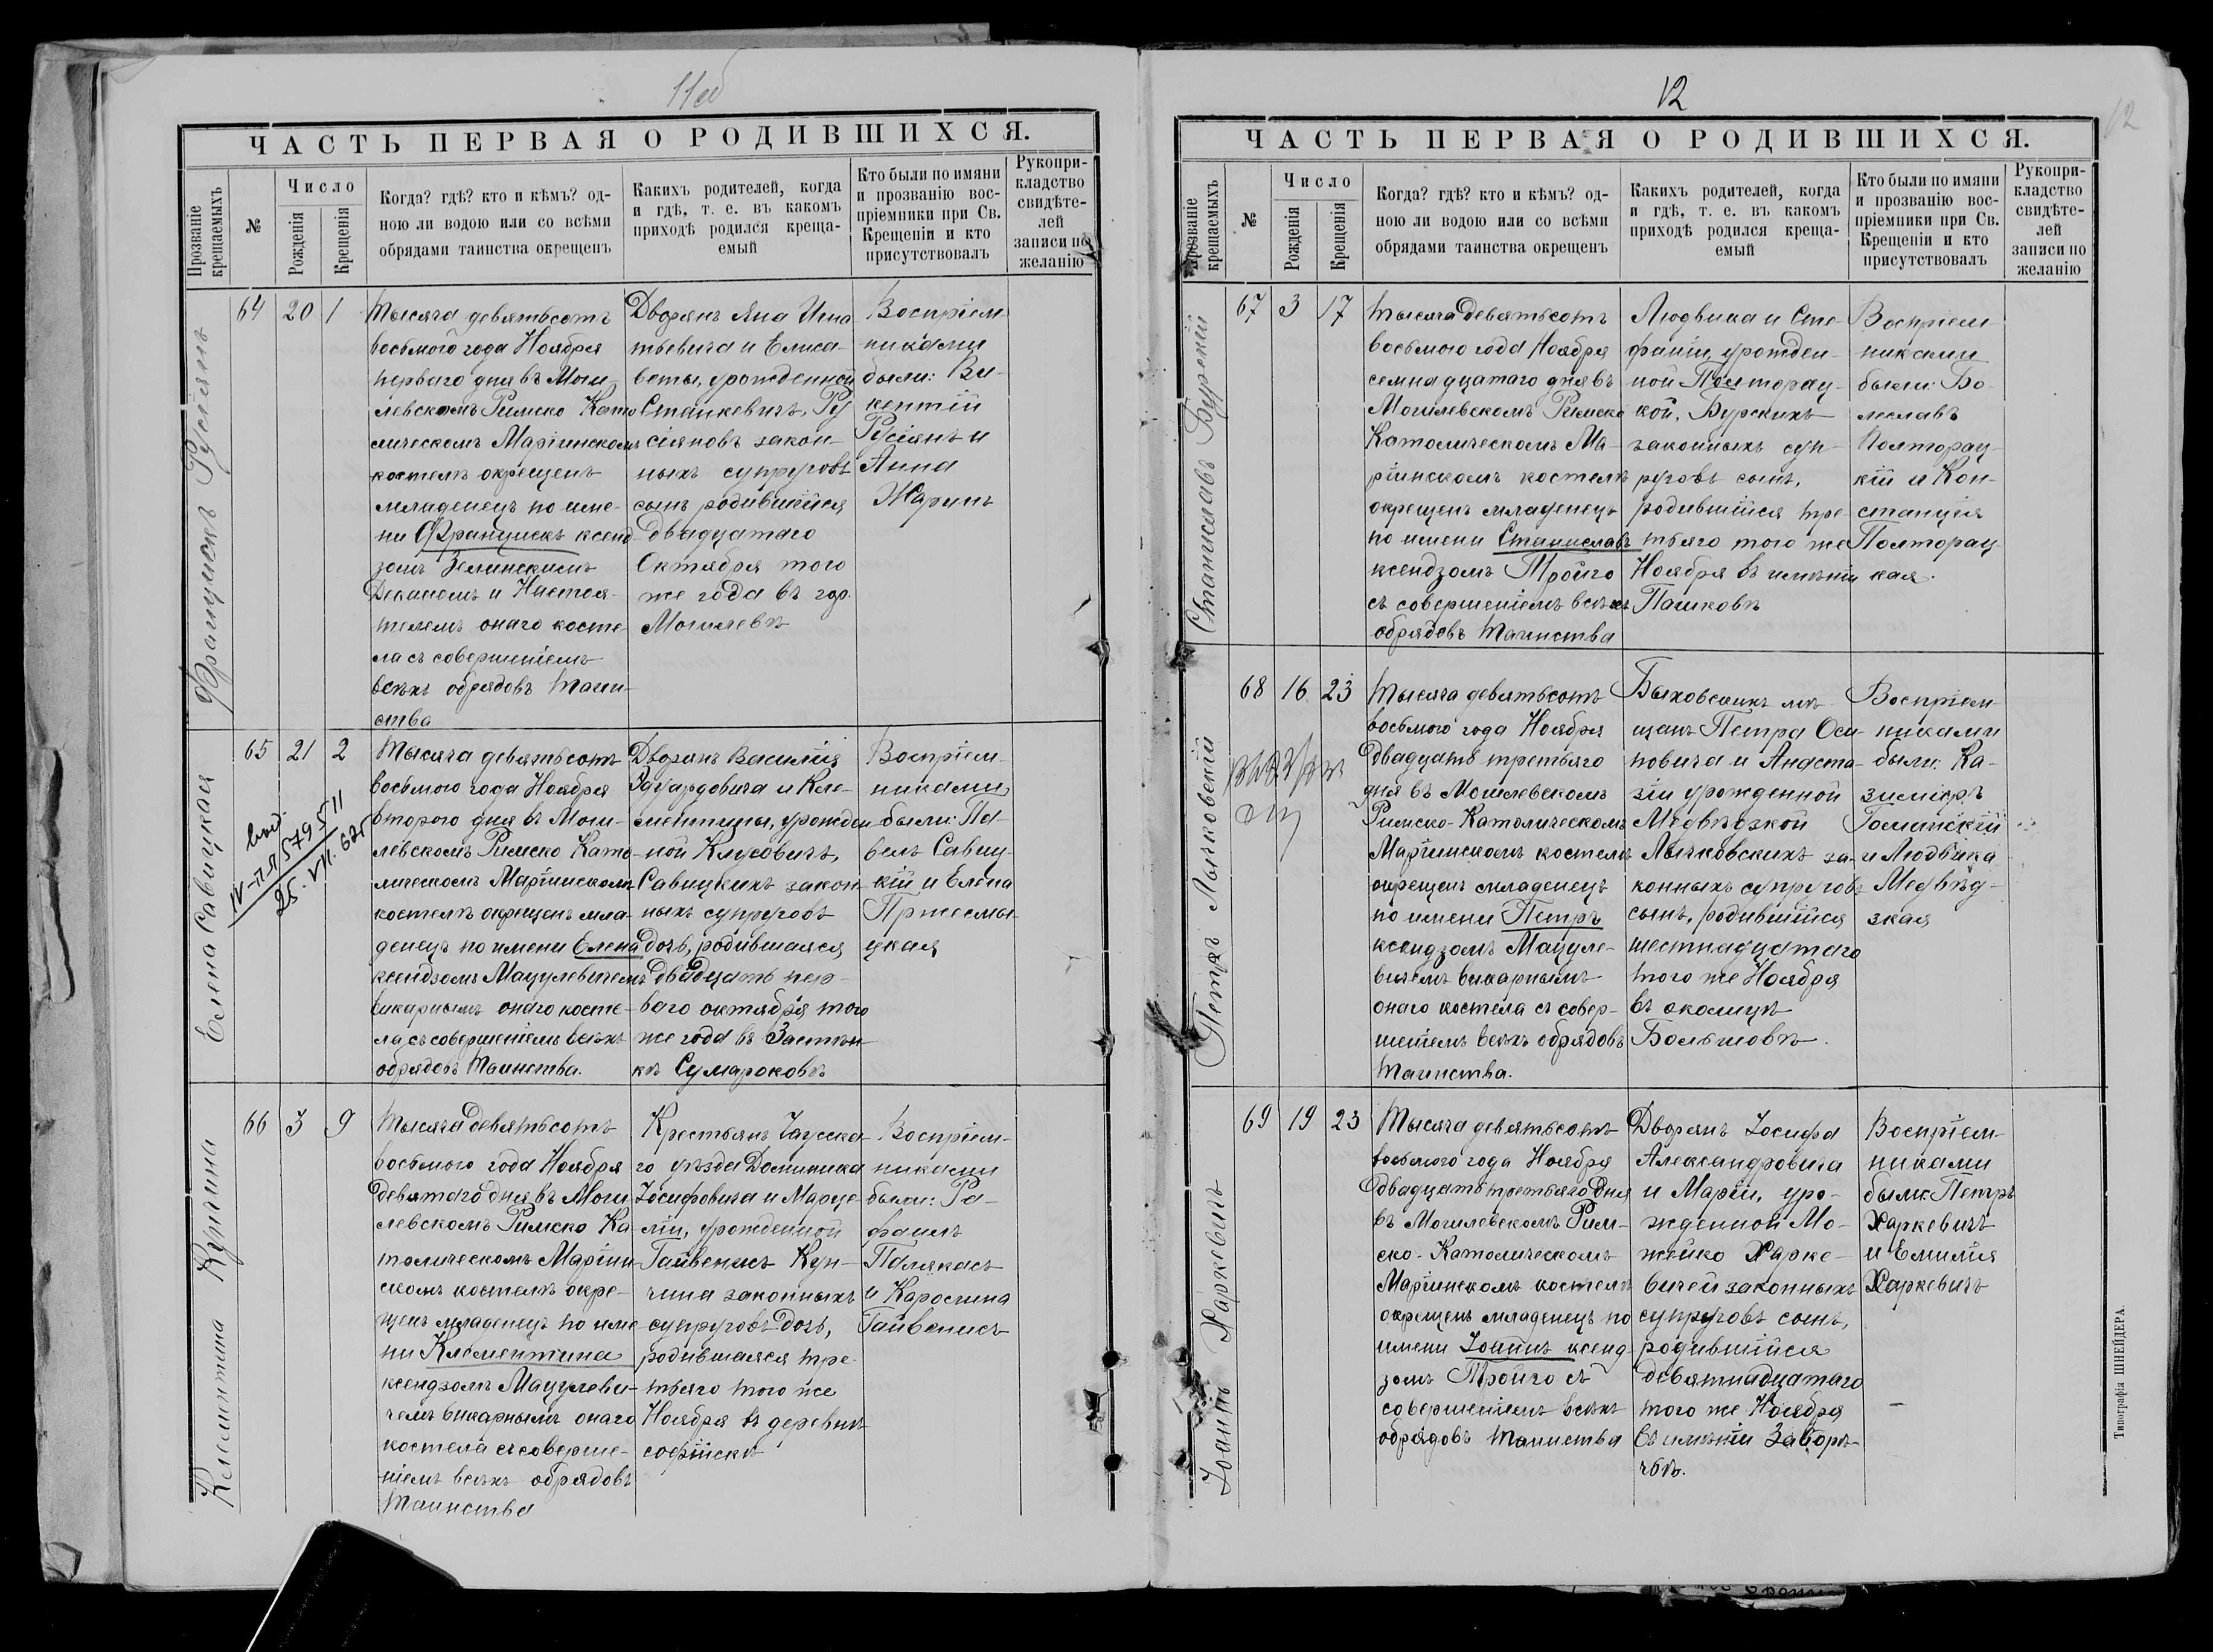 11об
ЧАСТЬ ПЕРВАЯ О РОДИВШИХСЯ.
Прозваніе крещаемыхъ
№
Число
Рожденія
Крещенія
Когда? гдѣ? кто и кѣмъ? од-
ною ли водою или со всѣми
обрядами таинства окрещенъ
Какихъ родителей, когда
и гдѣ, т. е. въ какомъ
приходѣ родился креща-
емый
Кто были по имяни
и прозванію вос-
пріемники при Св.
Крещеніи и кто
присутствовалъ
Рукопри-
кладство
свидѣте-
лей
записи по
желанію
Францискъ Русіянъ
64
20
1
Тысяча девятьсотъ
восьмого года Ноября
перваго дня въ Моги-
левскомъ Римско Като
лическомъ Маріинскомъ
костелѣ окрещенъ
младенецъ по име-
ни Францискъ ксенд
зомъ Зелинскимъ
Деканомъ и Настоя-
телемъ онаго косте-
ла съ совершеніемъ
всѣхъ обрядовъ Таин-
ства
Дворянъ Яна Игна
тьевича и Елиса-
веты, урожденной
Станкевичъ, Ру
сіяновъ закон-
ныхъ супруговъ
сынъ родившійся
двадцатаго
Октября того
же года въ гор.
Могилевѣ
Воспріем
никами
были: Ви-
кентій
Русіянъ и
Анна
Жаринъ
Елена Савицкая
65
21
2
IV-ПЯ 579511
25. VII.
Тысяча девятьсотъ
восьмого года Ноября
второго дня въ Моги-
левскомъ Римско Като-
лическомъ Маріинскомъ
костелѣ окрещенъ мла-
денецъ по имени Елена
ксендзомъ Мацулевичемъ
викарнымъ онаго косте-
ла съ совершеніемъ всѣхъ
обрядовъ Таинства.
Дворянъ Василія
Эдуардовича и Кле-
ментины, урожден
ной Клусовичъ,
Савицкихъ закон
ныхъ супруговъ
дочь, родившаяся
двадцать пер-
ваго октября того
же года въ Застѣн
кѣ Сумароковѣ
Воспріем-
никами
были: Па-
велъ Савиц-
кій и Елена
Пржесмы-
цкая
Клементина Кунчина
66
3
9
Тысяча девятьсотъ
восьмого года Ноября
девятаго дня въ Моги
левскомъ Римско Ка
толическомъ Маріин
скомъ костелѣ окре-
щенъ младенецъ по име
ни Клементина
ксендзомъ Мацулеви-
чемъ викарнымъ онаго
костела съ соверше-
ніемъ всѣхъ обрядовъ
Таинства
Крестьянъ Чаусска
го уѣзда Доминика
Іосифовича и Марце-
ліи, урожденной
Гайвенисъ Кун-
чина законныхъ
супруговъ дочь,
родившаяся тре-
тьяго того же
Ноября въ деревнѣ
софійскѣ
Воспріем-
никами
были: Ра-
фаилъ
Палякасъ
и Каролина
Гайвенисъ
12
12
ЧАСТЬ ПЕРВАЯ О РОДИВШИХСЯ.
Прозваніе крещаемыхъ
№
Число
Рожденія
Крещенія
Когда? гдѣ? кто и кѣмъ? од-
ною ли водою или со всѣми
обрядами таинства окрещенъ
Какихъ родителей, когда
и гдѣ, т. е. въ какомъ
приходѣ родился креща-
емый
Кто были по имяни
и прозванію вос-
пріемники при Св.
Крещеніи и кто
присутствовалъ
Рукопри-
кладство
свидѣте-
лей
записи по
желанію
Станиславъ Бурскій
67
3
17
Тысяча Девятьсотъ
восьмого года Ноября
семнадцатаго дня въ
Могилевскомъ Римско
Католическомъ Ма-
ріинскомъ костелѣ
окрещенъ младенецъ
по имени Станиславъ
ксендзомъ Тройго
съ совершеніемъ всѣхъ
обрядовъ Таинства
Людвика и Сте-
фаніи, урожден-
ной Полторац-
кой, Бурскихъ
законныхъ суп-
руговъ сынъ,
родившійся тре-
тьяго того же
Ноября въ имѣніи
Пашковѣ
Воспріем-
никами
были: Бо-
леславъ
Полторац-
кій и Кон-
станція
Полторац-
кая.
Петръ Лычковскій
68
16
23
Тысяча девятьсотъ
восьмого года Ноября
двадцать третьяго
дня въ Могилевскомъ
Римско-Католическомъ
Маріинскомъ костелѣ
окрещенъ младенецъ
по имени Петръ
ксендзомъ Мацуле-
вичемъ викарнымъ
онаго костела съ совер-
шеніемъ всѣхъ обрядовъ
Таинства.
Быховскихъ мѣ-
щанъ Петра Оси-
повича и Анаста-
зіи урожденной
Медвѣдзкой
Лычковскихъ за-
конныхъ супруговъ
сынъ, родившійся
шестнадцатаго
того же Ноября
въ околицѣ
Большовѣ.
Воспріем
никами
были: Ка-
зиміръ
Гоманскій
и Людвика
Медвѣд-
зкая
Іоаннъ Харкевичъ
69
19
23
Тысяча девятьсотъ
восьмого года Ноября
двадцать третьяго Дня
въ Могилевскомъ Рим-
ско-Католическомъ
Маріинскомъ костелѣ
окрещенъ младенецъ по
имени Іоаннъ ксенд-
зомъ Тройго съ
совершеніемъ всѣхъ
обрядовъ Таинства
Дворянъ Іосифа
Александровича
и Маріи, уро-
жденной Мо-
жейко Харке-
вичей законныхъ
супруговъ сынъ,
родившійся
девятнадцатаго
того же Ноября
въ имѣніи
Воспріем-
никами
были: Петръ
Харкевичъ
и Емилія
Харкевичъ
Типографія ШНЕЙДЕРА.